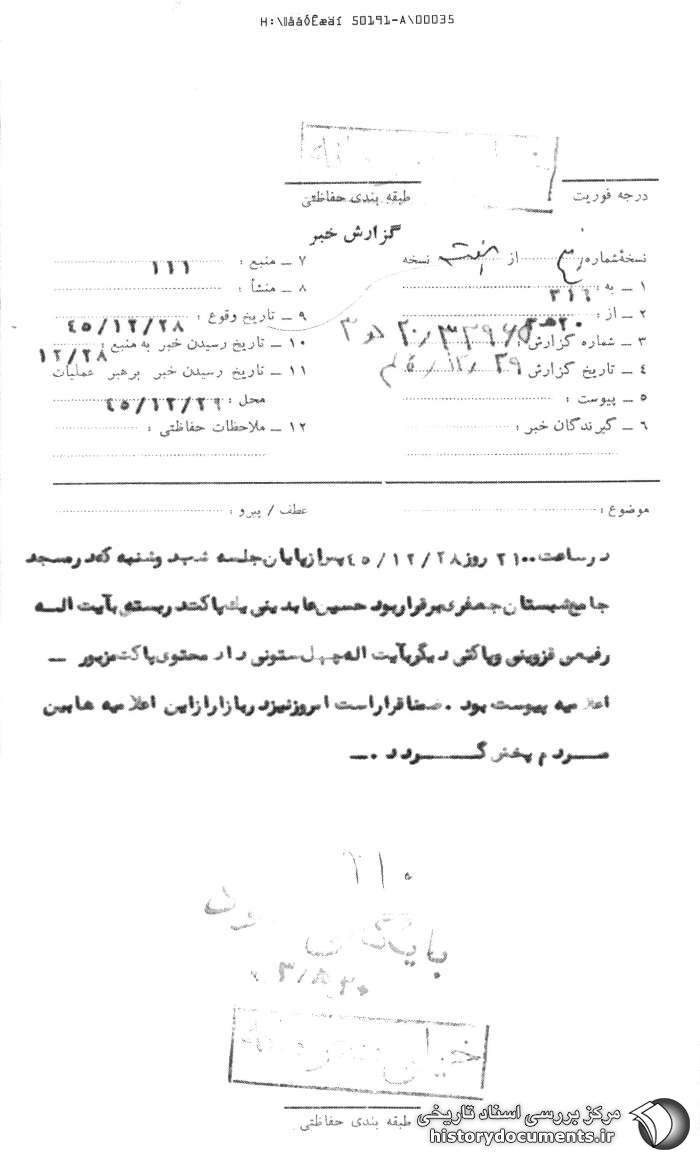 50191-A\00035
درجه فوریت
طبقه بندی حفاظتی
گزارش خبر
نسخهٔ شماره از نسخه
۱ – به : ۳۱۶
۲ – از : ۲۰ ه ۳
۳ – شماره گزارش :
۴ – تاریخ گزارش
۵ – پیوست :
۶ – گیرندگان خبر :
۷ – منبع : ۱۱۱
۸ – منشأ :
۹ – تاریخ وقوع : ۴۵/۱۲/۲۸
۱۰ – تاریخ رسیدن خبر به منبع : ۱۲/۲۸
۱۱ – تاریخ رسیدن خبر برهبر عملیات
محل : ۴۵/۱۲/۲۹
۱۲ – ملاحظات حفاظتی :
موضوع :
عطف / پیرو :
در ساعت ۲۱۰۰ روز ۴۵/۱۲/۲۸ پس از پایان جلسه شب دوشنبه که در مسجد
جامع شبستان چهلستون برقرار بود حسین عابدینی یک پاکت در بسته به آیت اله
رفیعی قزوینی و پاکتی دیگر به آیت اله چهل ستونی داد محتوی پاکت مزبور –
اعلامیه پیوست بود . ضمنا قرار است امروز نیز در بازار از این اعلامیه ها بین
مردم پخش گردد .–
بایگانی
خیلی محرمانه
طبقه بندی حفاظتی
مرکز بررسی اسناد تاریخی
historydocuments.ir